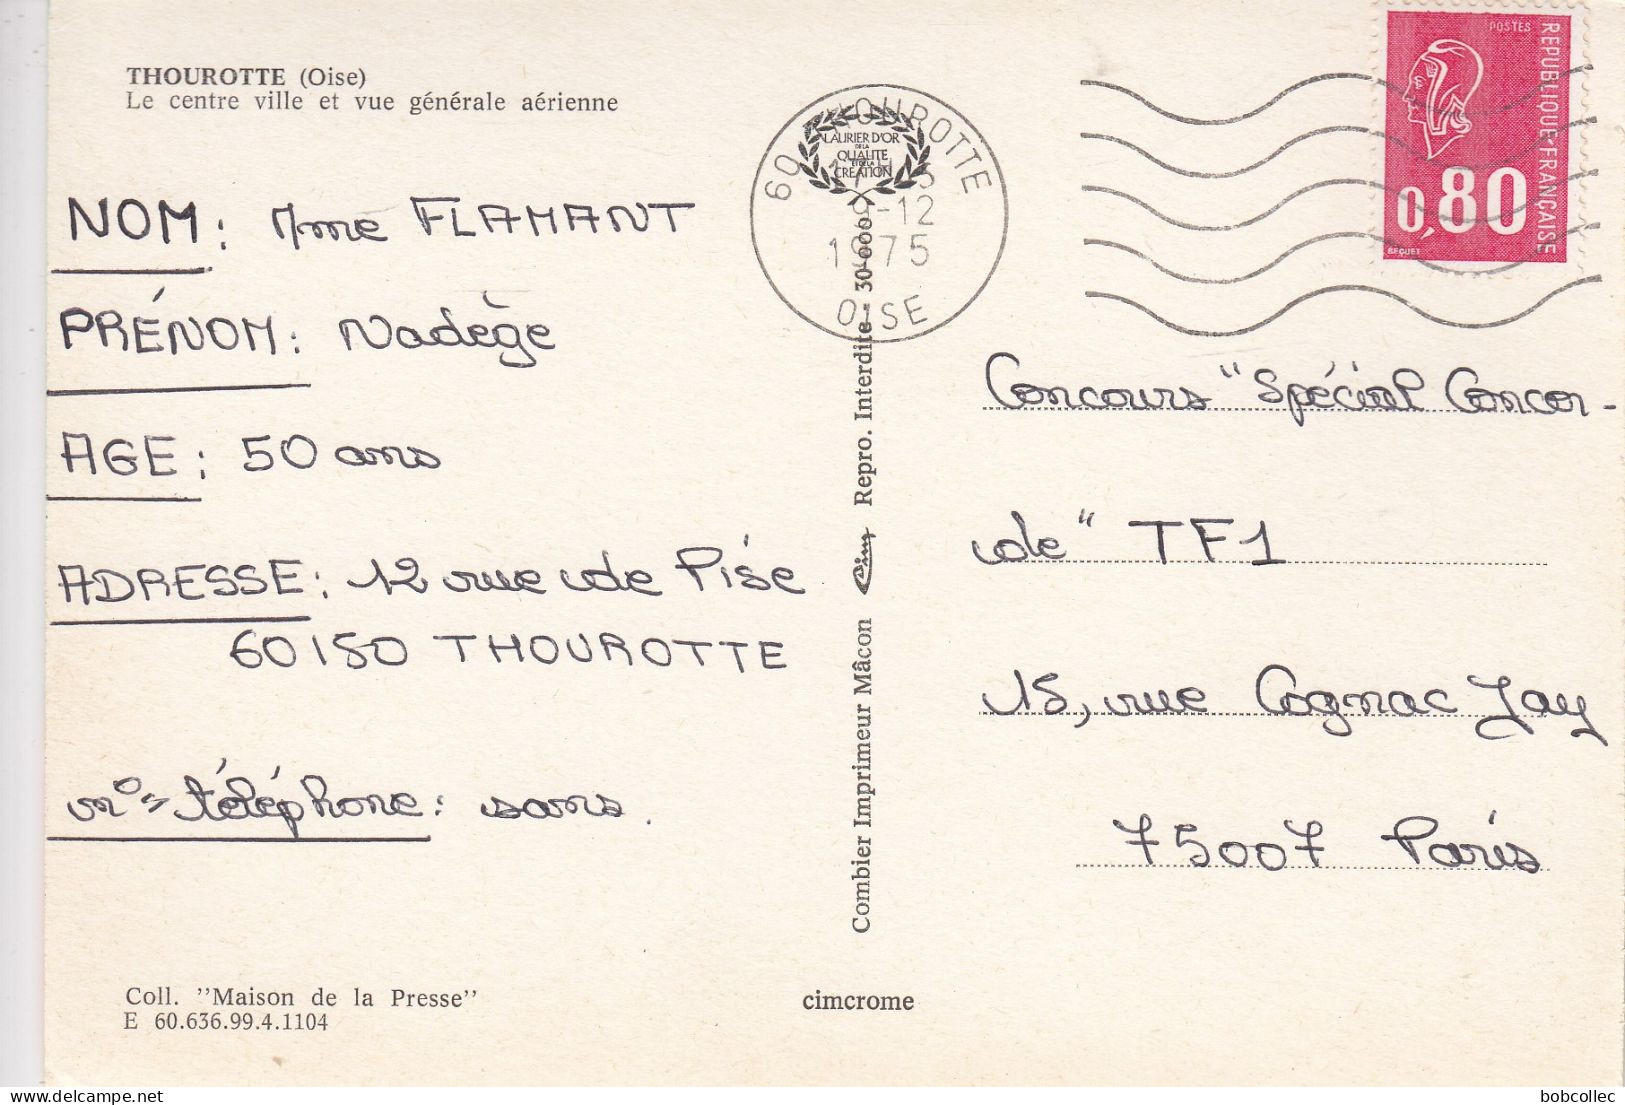 THOUROTTE (Oise)
Le centre ville et vue générale aérienne
NOM: Mme FLAMANT
PRÉNOM: Nadège
AGE: 50 ans
ADRESSE: 12 rue de Pise
60150 THOUROTTE
n° téléphone: sans.
Coll. "Maison de la Presse"
E 60.636.99.4.1104
60 THOUROTTE
LAURIER D'OR
DE LA
QUALITE
ET DE LA
CREATION
9-12
1975
OISE
Combier Imprimeur Mâcon Cim Repro. Interdite - 30-000
cimcrome
POSTES
REPUBLIQUE FRANÇAISE
0,80
BEQUET
Concours "Spécial Concor-
de" TF1
15, rue Cognac Jay
75007 Paris
bobcollec